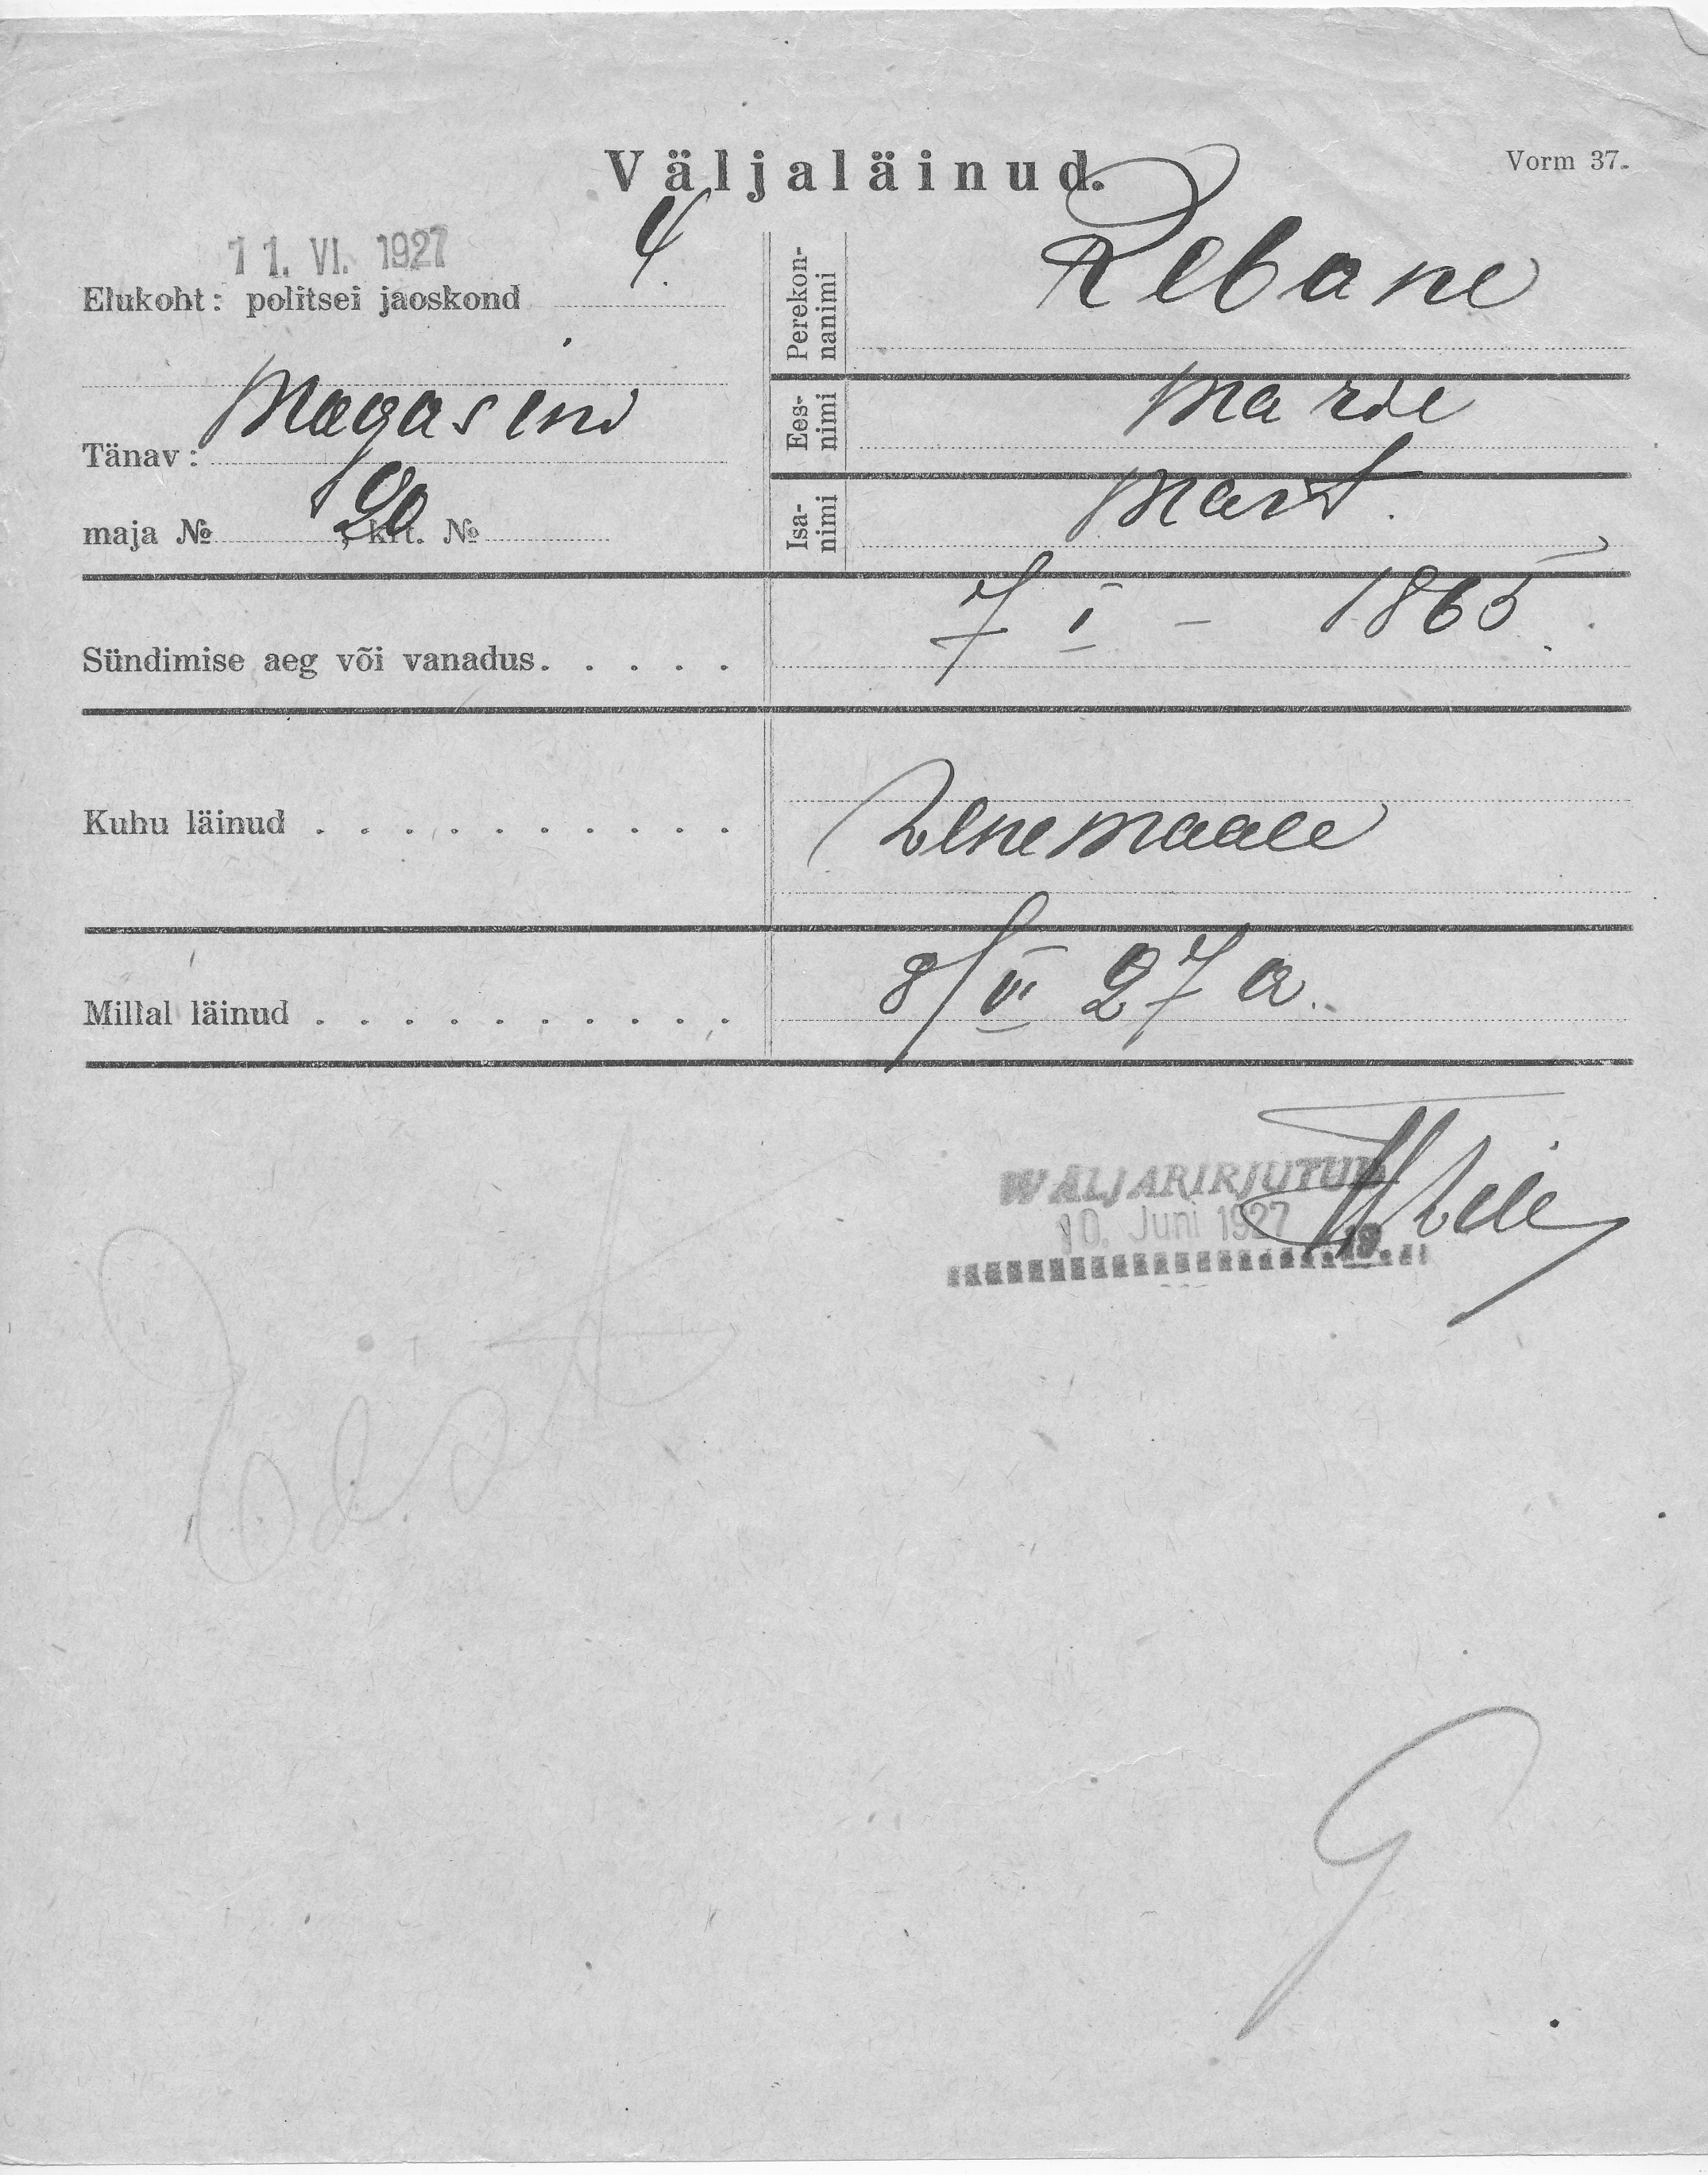 Väljaläinud.
Vorm 37.
11. VI. 1927
Elukoht: politsei jaoskond 4.
Magasini
Tänav:
maja № 20, krt. №
Perekon-
nanimi
Rebane
Ees-
nimi
Marie
Isa-
nimi
Mart.
Sündimise aeg või vanadus. . . . . . 7 I – 1865.
Kuhu läinud . . . . . . . . . . Venemaale
Millal läinud . . . . . . . . . . 8/VI 27 a.
WÄLJAKIRJUTUD
10. Juni 1927
19